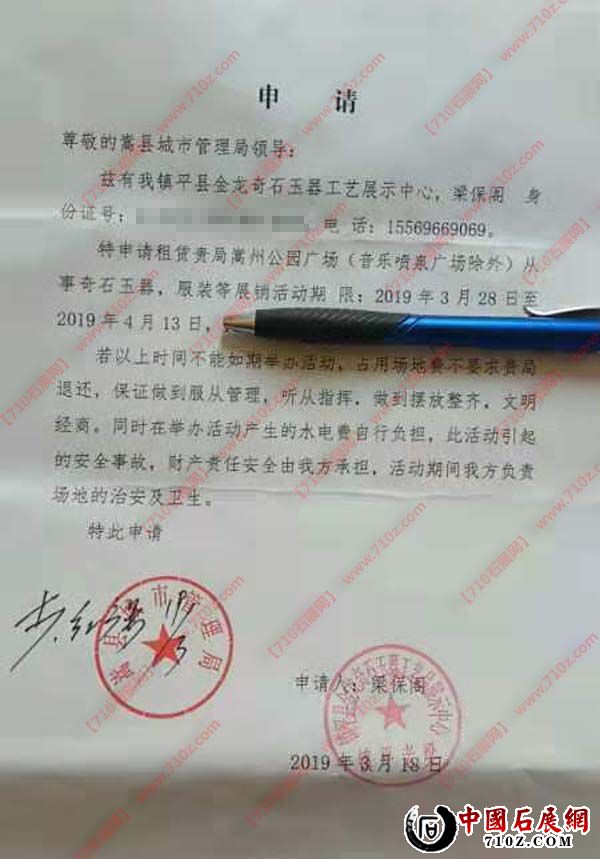 申 请
尊敬的嵩县城市管理局领导：
兹有我镇平县金龙奇石玉器工艺展示中心，梁保阁 身
份证号： ，电 话：15569669069。
特申请租赁贵局嵩州公园广场（音乐喷泉广场除外）从
事奇石玉器，服装等展销活动期 限：2019 年 3 月 28 日至
2019 年 4 月 13 日，
若以上时间不能如期举办活动，占用场地费不要求贵局
退还，保证做到服从管理，听从指挥，做到摆放整齐，文明
经商。同时在举办活动产生的水电费自行负担，此活动引起
的安全事故，财产责任安全由我方承担，活动期间我方负责
场地的治安及卫生。
特此申请
嵩县 市管理局
申请人：梁保阁
2019 年 3 月 18 日
【710石展网】www.710z.com
中國石展網
710Z.COM